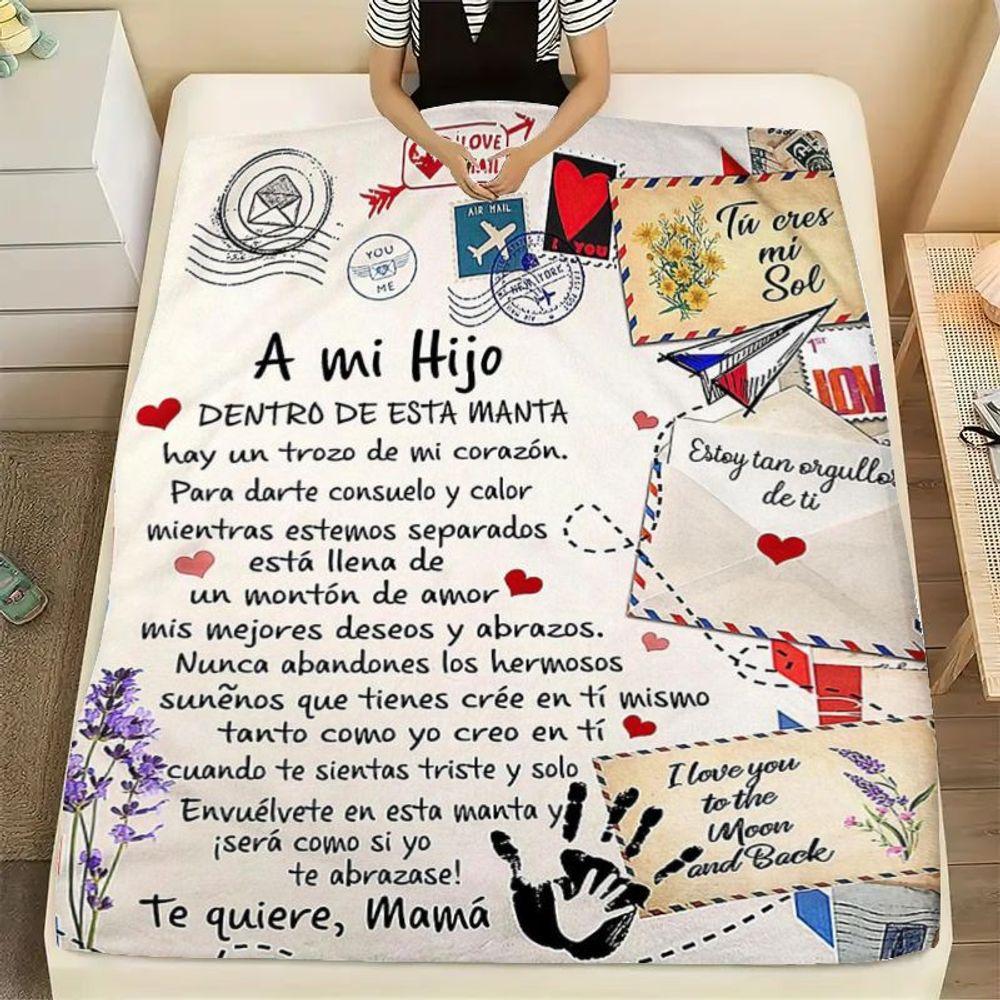 LOVE
MAIL
AIR MAIL
I YOU
YOU
ME
NEW YORK
Tú eres
mi
Sol
A mi Hijo
DENTRO DE ESTA MANTA
hay un trozo de mi corazón.
Para darte consuelo y calor
mientras estemos separados
está llena de
un montón de amor
mis mejores deseos y abrazos.
Nunca abandones los hermosos
suneños que tienes crée en tí mismo
tanto como yo creo en tí
cuando te sientas triste y solo
Envuélvete en esta manta y
¡será como si yo
te abrazase!
Te quiere, Mamá
1ST
LOV
Estoy tan orgullos
de ti
I love you
to the
Moon
and Back